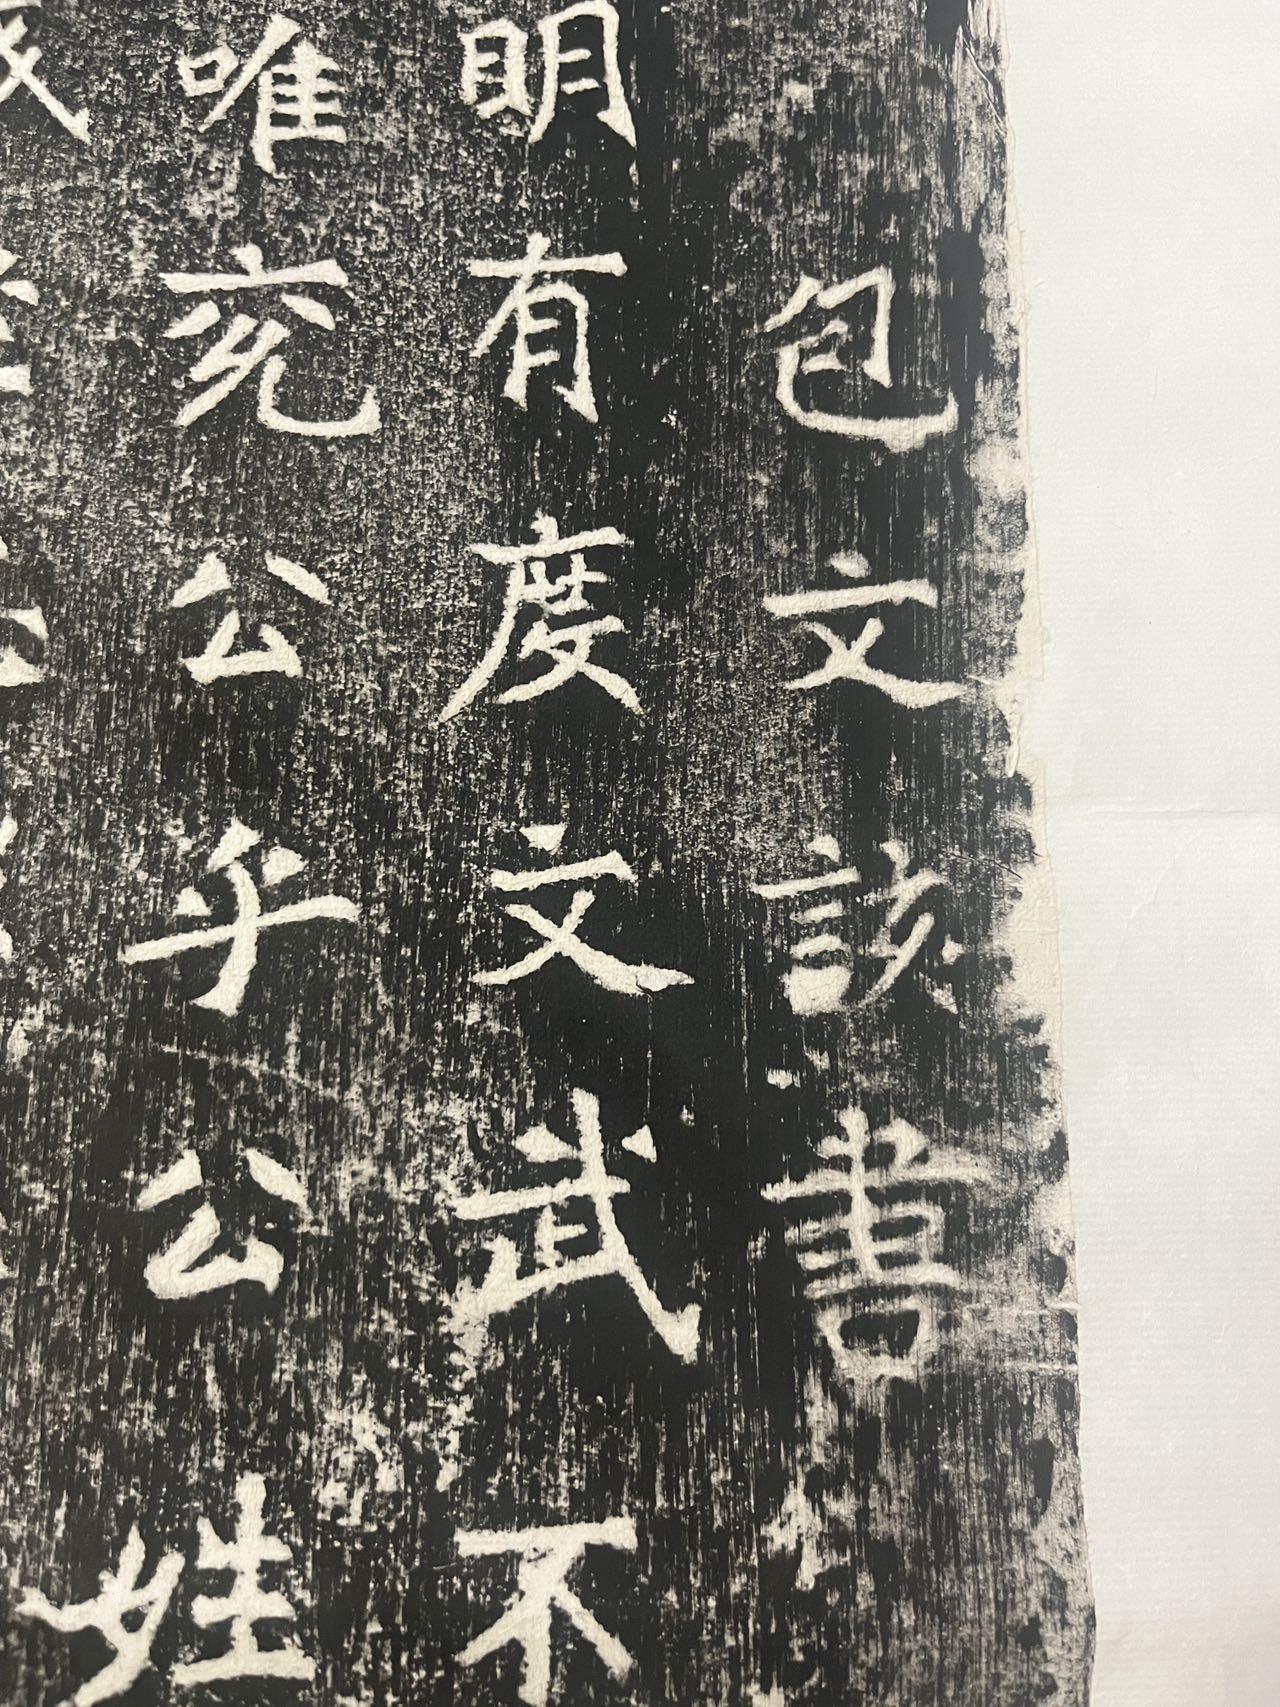 包文該書
明有度文武不
唯兖公乎公姓